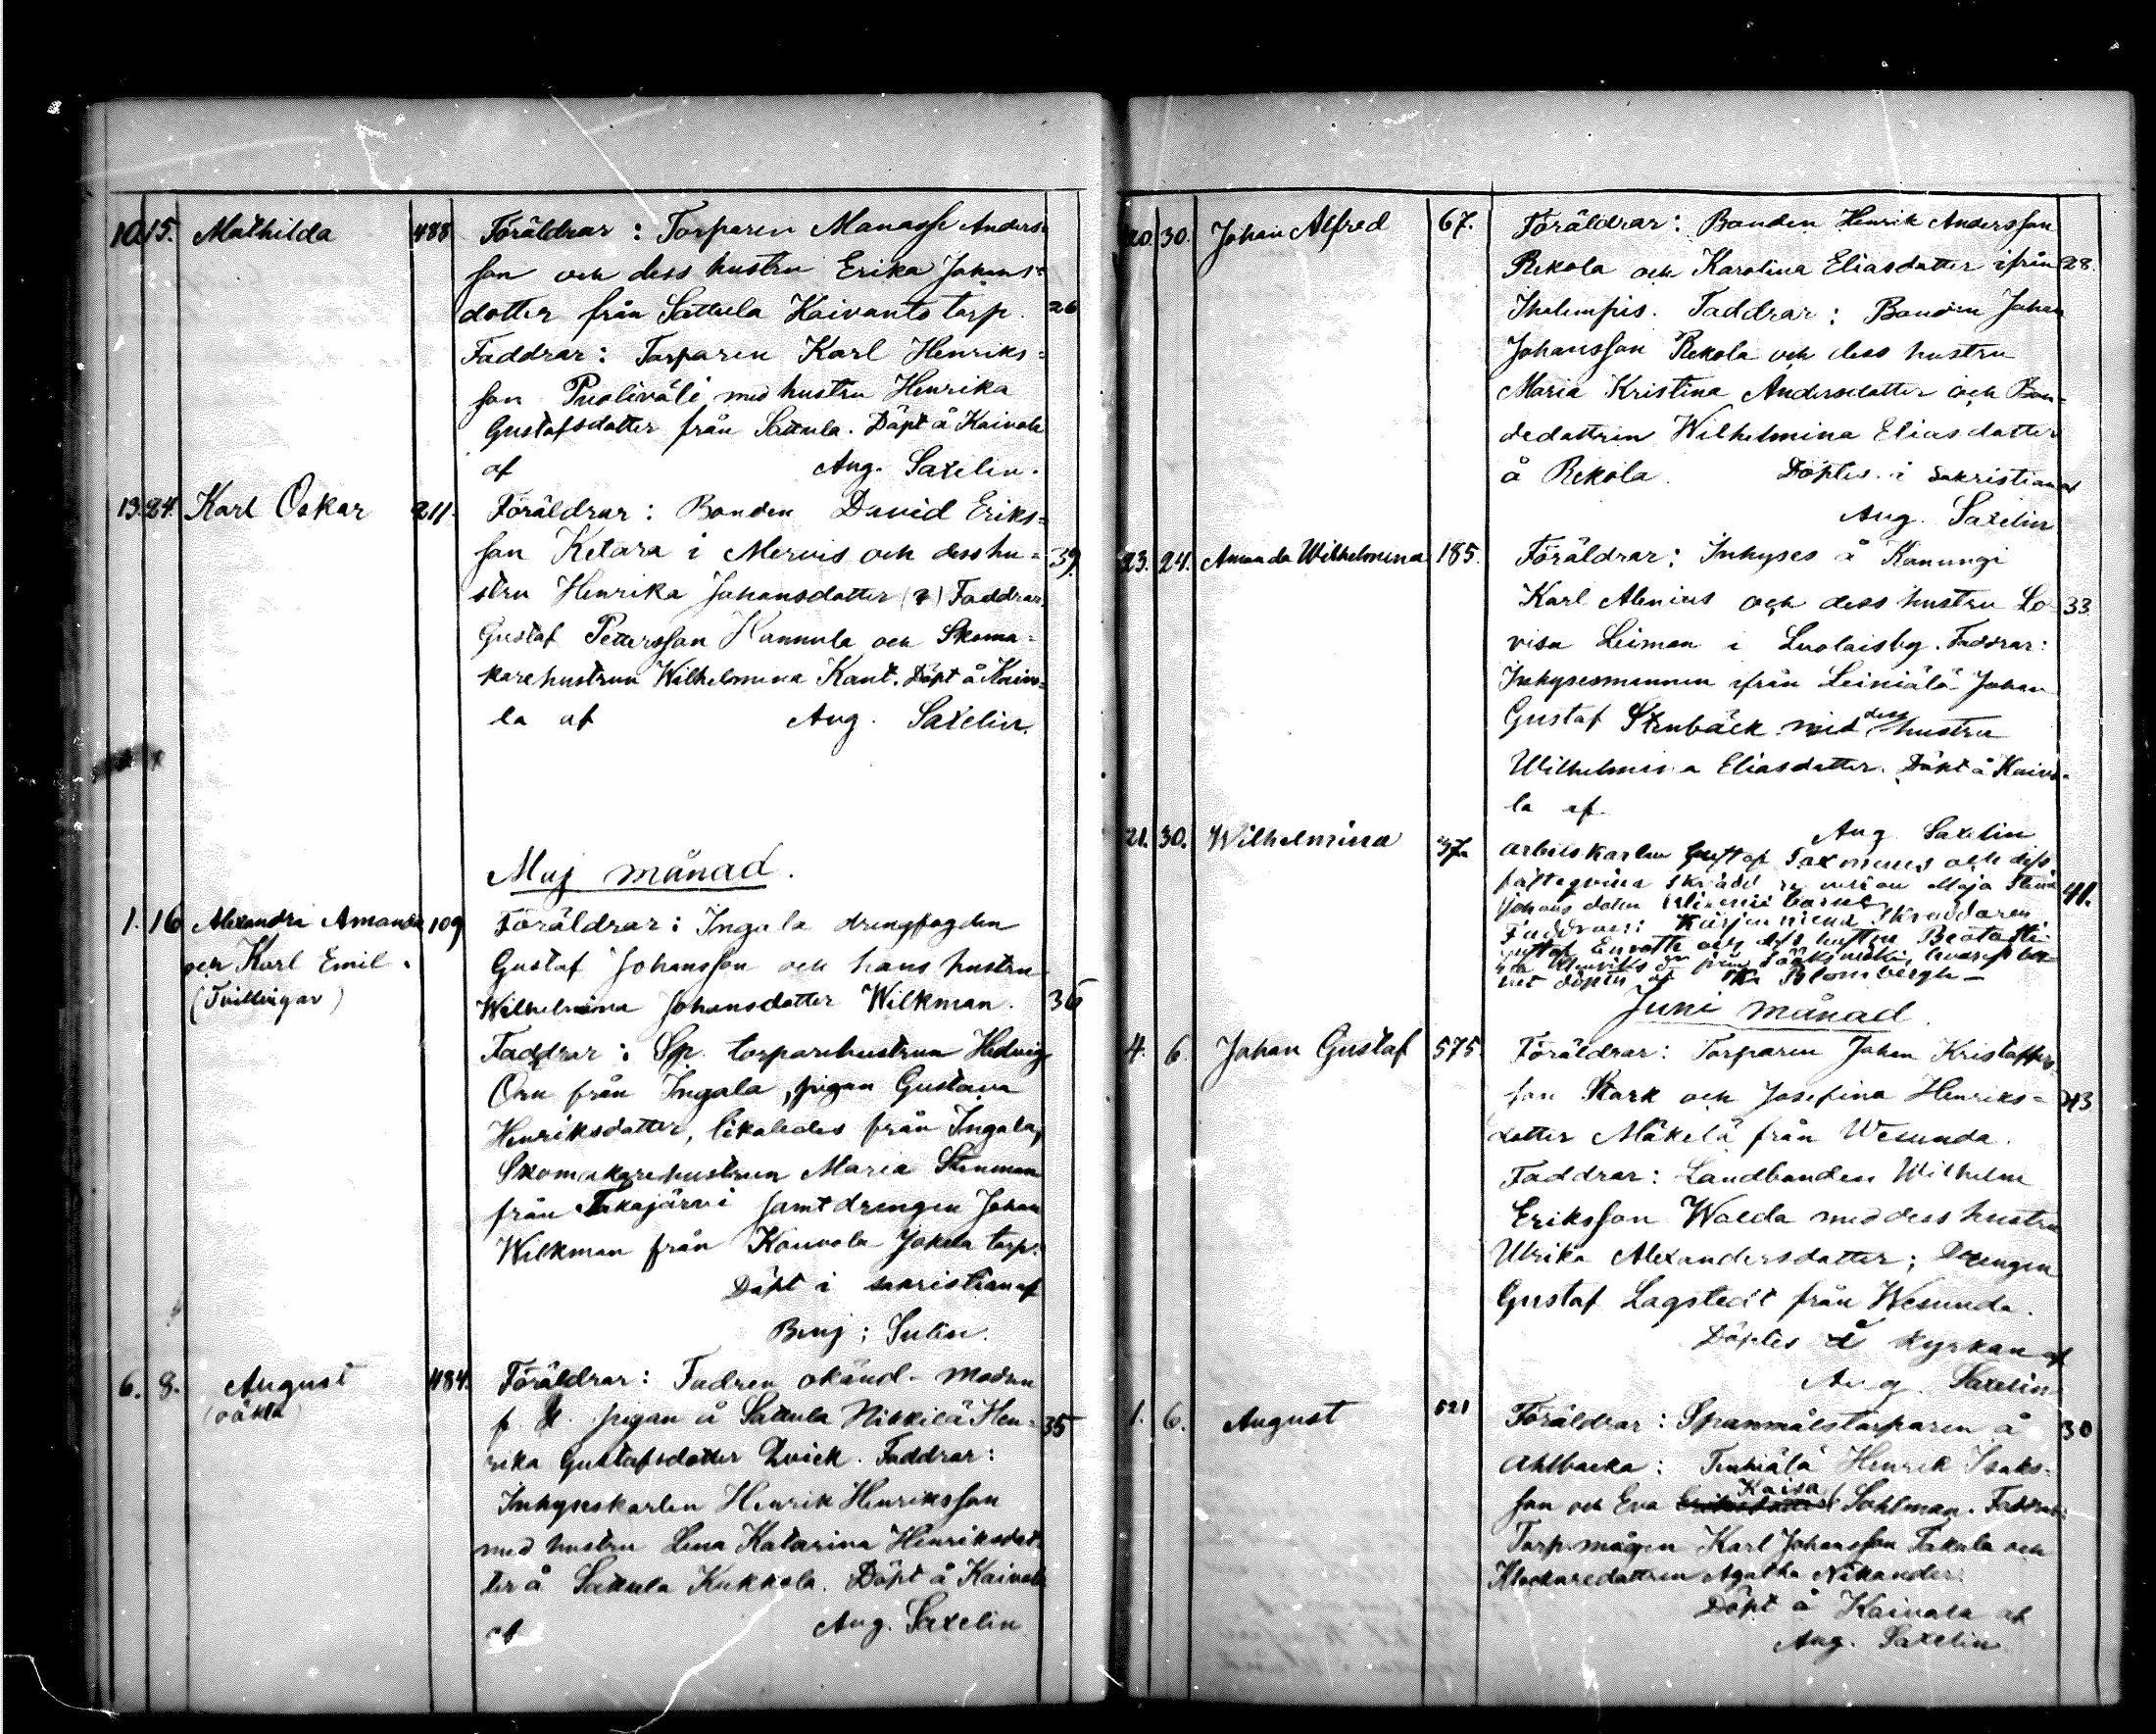 10. 15. Mathilda 488 Föräldrar: Torparen Manasse Anders-
son och dess hustru Erika Johans=
dotter från Sattula Kaivanto torp. 26
Faddrar: Torparen Karl Henriks=
son Puoliväli med hustru Henrika
Gustafsdotter från Sattula. Döpt å Kaivola
af Aug. Saxelin.
13. 24. Karl Oskar 211. Föräldrar: Bonden David Eriks=
son Ketara i Mervis och dess hu=
stru Henrika Johansdotter Faddrar: 39.
Gustaf Pettersson Hannula och Skoma=
karehustrun Wilhelmina Kant. Döpt å Kaivo=
la af Aug. Saxelin.
Maj månad.
1. 16 Alexandra Amanda 109 Föräldrar: Ingala drengfogden
och Karl Emil. Gustaf Johansson och hans hustru
(Tvillingar) Wilhelmina Johansdotter Wilkman. 36
Faddrar: Sp. torparehustrun Hedvig
Orn från Ingala, pigan Gustava
Henriksdotter, likaledes från Ingala,
Skomakarehustrun Maria Stenman
från Takajärvi samt drengen Johan
Wilkman från Kouvola Jokela torp.
Döpt i sakristian af
Benj: Sulin.
6. 8. August 484. Föräldrar: Fadren okänd. Modren
(oäkta) f. d. pigan å Sattula Hikkilä Hen= 35
rika Gustafsdotter Qvick. Faddrar:
Inhyseskarlen Henrik Henriksson
med hustru Lena Katarina Henriksdot=
ter å Sattula Kukkola. Döpt å Kaivola
af Aug. Saxelin
20 30. Johan Alfred 67. Föräldrar: Bonden Henrik Andersson
Rekola och Karolina Eliasdotter ifrån 28.
Ihalempis. Faddrar: Bonden Johan
Johansson Rekola och dess hustru
Maria Kristina Andersdotter och Bon=
dedottren Wilhelmina Eliasdotter
å Rekola. Döptes i sakristian af
Aug. Saxelin
23. 24. Amanda Wilhelmina 185. Föräldrar: Inhyses å Kanungi
Karl Alenius och dess hustru Lo- 33
visa Leiman i Luolaisby. Faddrar:
Inhysesmannen ifrån Leiniälä Johan
Gustaf Stenbäck med dess hustru
Wilhelmina Eliasdotter. Döpt å Kaivo-
la af
Aug. Saxelin
21. 30. Wilhelmina 37. arbetskarlen Gustaf Taxmans och dess
fästeqvinna Maja Stina 41.
Johans doter barn
Faddrar: Skräddaren
Gustaf och dess hustru Beata
från
net döptes af Blombergh
Juni månad
4. 6. Johan Gustaf 575. Föräldrar: Torparen Johan Kristoffers-
son Stark och Josefina Henriks= 43
dotter Mäkelä från Wesunda.
Faddrar: Landbonden Wilhelm
Eriksson Walda med dess hustru
Ulrika Alexandersdotter; Drengen
Gustaf Lagstedt från Wesunda.
Döptes i kyrkan af
Aug. Saxelin
1. 6. August 521 Föräldrar: Spannmålstorparen å 30
Ahlbacka: Henrik Isaks-
son och Eva Kaisa Sahlman. Faddrar:
Torp.mågen Karl Johansson Takala och
Klockaredottren Agatha Nikander.
Döpt å Kaivola af
Aug. Saxelin